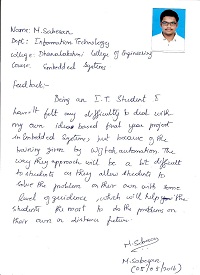 Name: M. Sabesan
Dept: Information Technology
College: Dhanalakshmi College of Engineering
Course: Embedded Systems
Feedback:-
Being an I.T. Student I
haven't felt any difficulty to deal with
my own ideas based final year project
in Embedded Systems, but because of the
training given by Wiztech automation. The
way they approach will be a bit different
to students as they allow students to
solve the problem on their own with some
level of guidence, which will help for the
students the most to do the problems on
their own in distance future.
M. Sabesan
M. Sabesan
(05/03/2016)